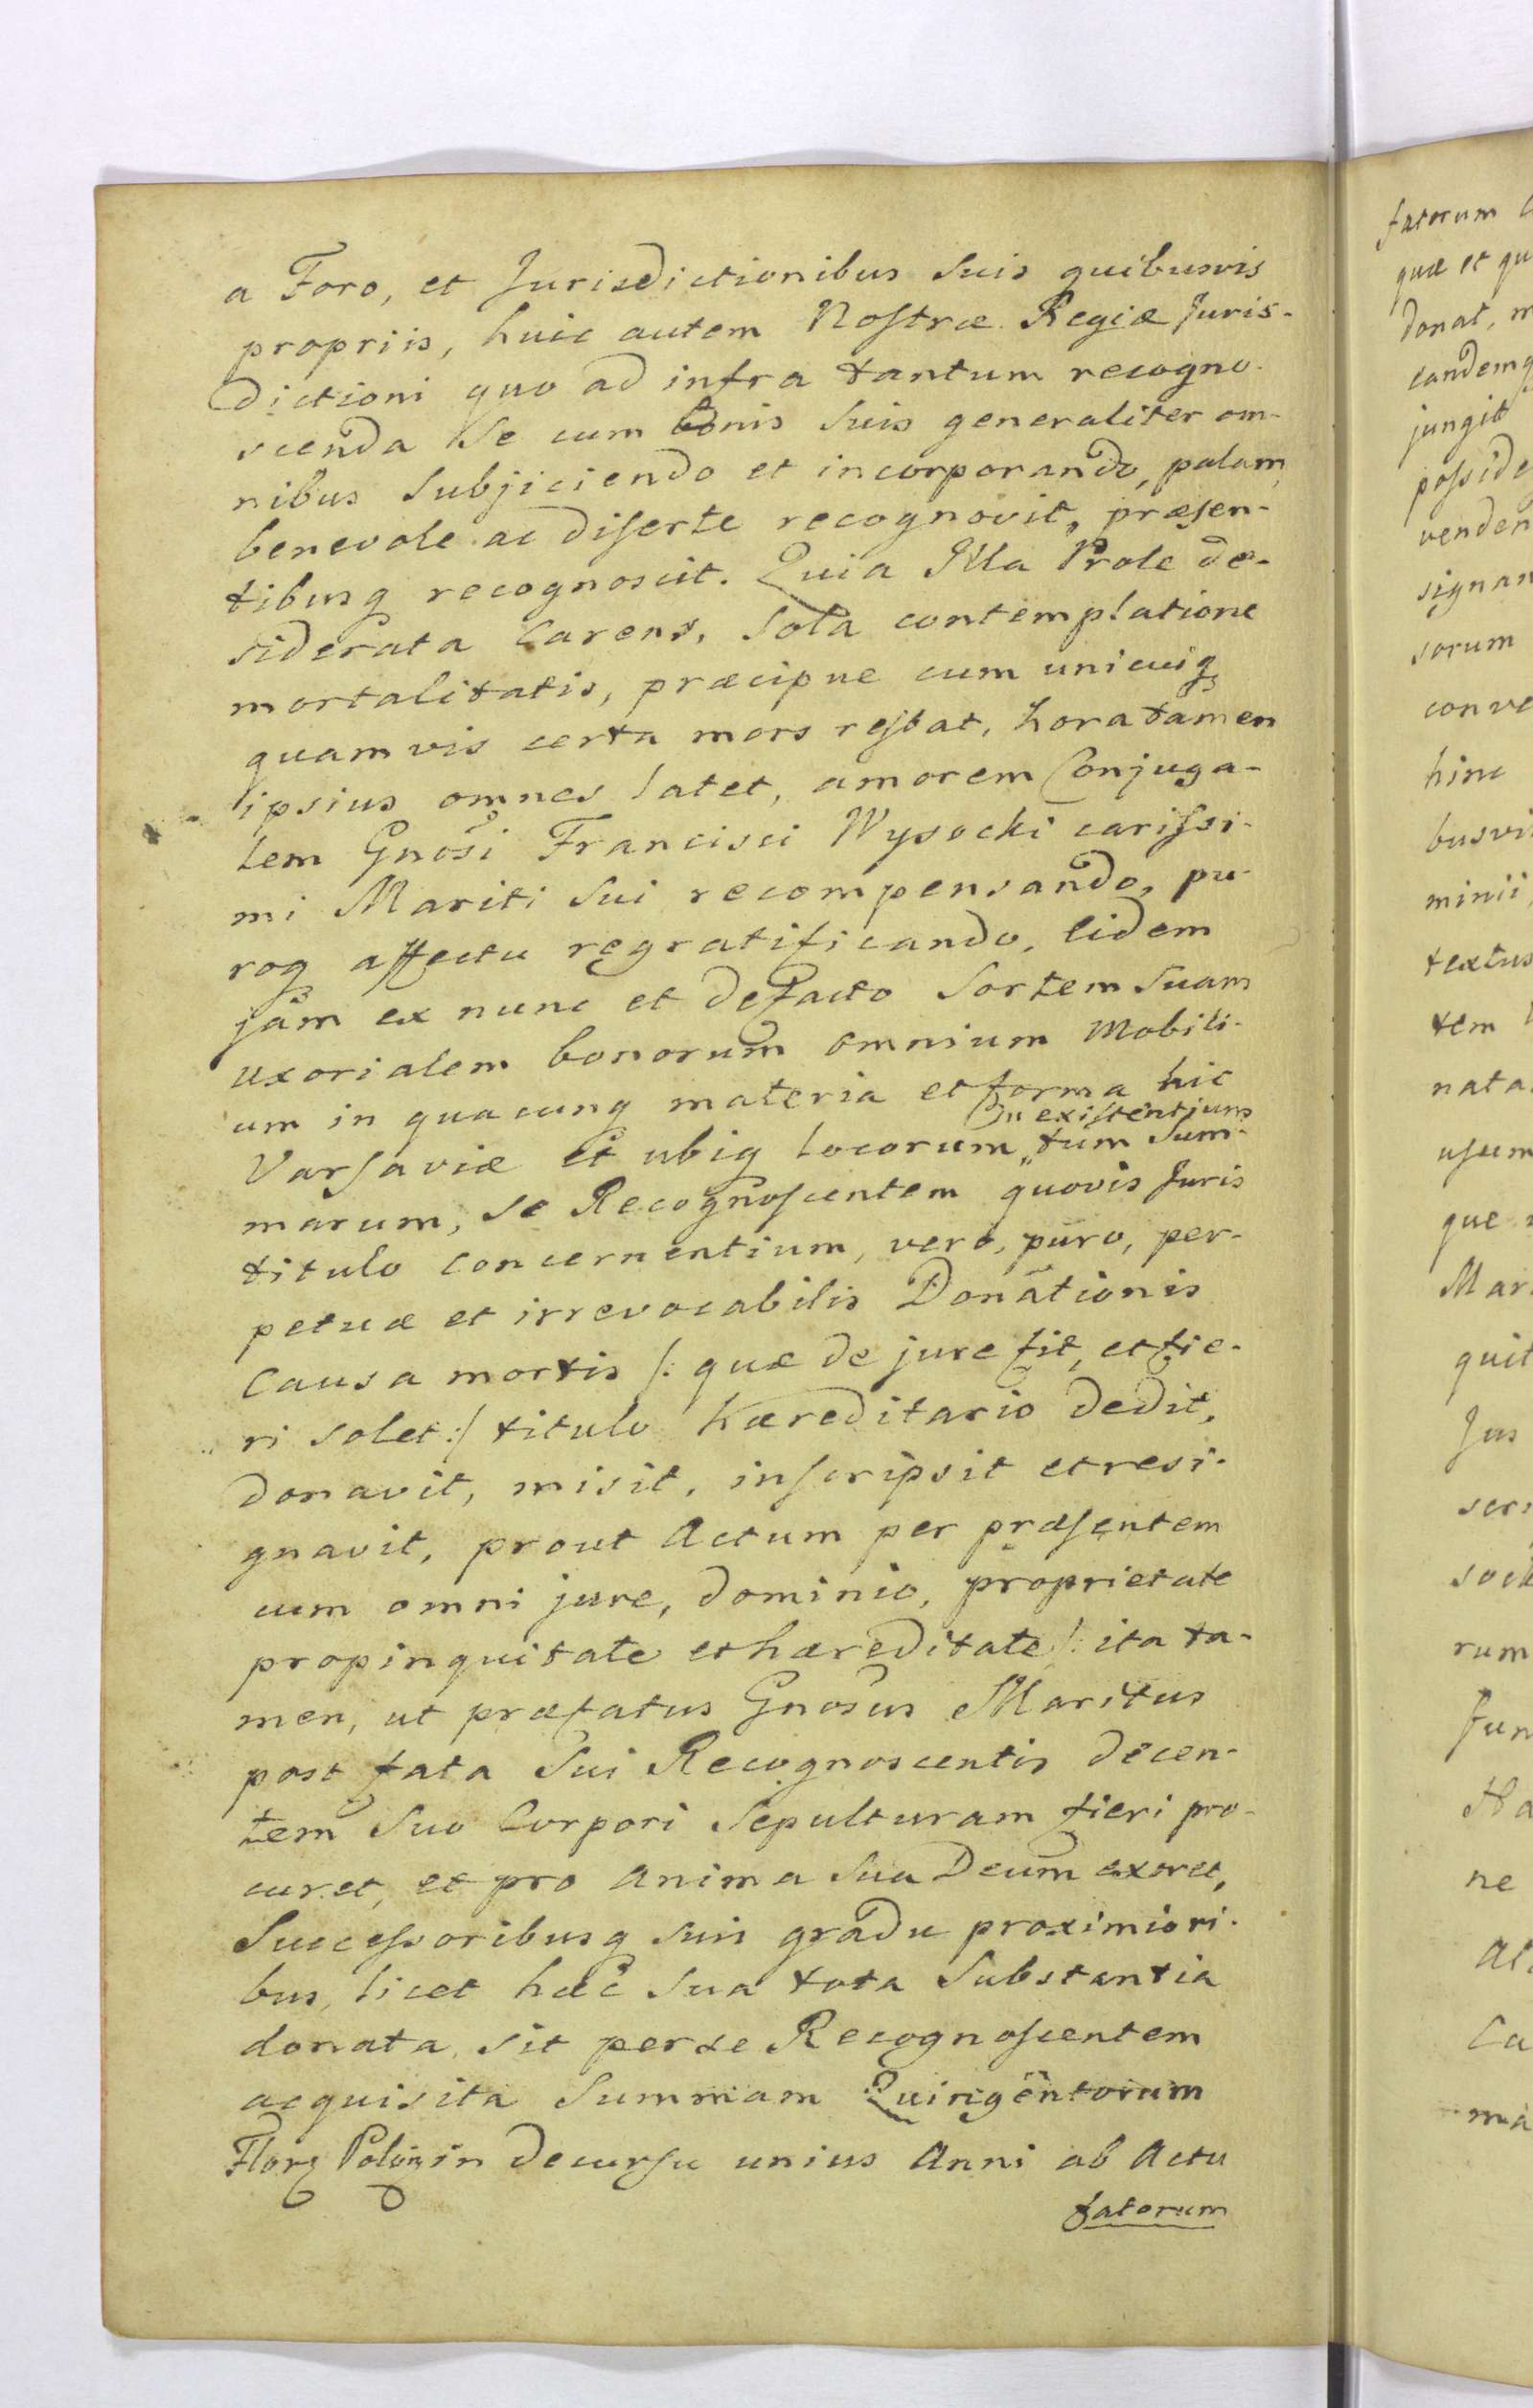 a Foro, et Jurisdictionibus Suis quibusvis
propriis, huic autem Nostræ Regiæ Juris-
dictioni quo ad infra tantum recogno-
scenda Se cum bonis Suis generaliter om-
nibus Subjiciendo et incorporando, palam,
benevole ac diserte recognovit, præsen-
tibusq recognoscit. Quia Illa Prole de-
siderata Carens, Sola contemplatione
mortalitatis, præcipue cum unicuiq
quamvis certa mors restat, hora tamen
ipsius omnes latet, amorem Conjuga-
lem Gnosi Francisci Wysocki carissi-
mi Mariti Sui recompensando, pu-
roq affectu regratificando, Eidem
jam ex nunc et defacto Sortem Suam
uxorialem bonorum omnium Mobili-
um in quacunq materia et forma hic
In existentium
Varsaviæ et ubiq locorum, tum Sum-
marum, Se Recognoscentem quovis Juris
titulo concernentium, vero, puro, per-
petuæ et irrevocabilis Donationis
Causa mortis /: quæ de jure fit, et fie-
ri solet :/ titulo Hæreditario dedit,
donavit, misit, inscripsit et resi-
gnavit, prout Actum per præsentem
cum omni jure, dominio, proprietate
propinquitate et hæreditate /: ita ta-
men, ut præfatus Gnosus Maritus
post fata Sui Recognoscentis decen-
tem Suo Corpori Sepulturam fieri pro-
curet, et pro Anima Sua Deum exoret,
Successoribusq suis gradu proximiori-
bus, licet hæc Sua tota Substantia
donata, sit per se Recognoscentem
acquisita Summam Quingentorum
Flor Polon in decursu unius Anni ab Actu
fatorum
fatorum
quæ et qu
donat, m
eandemq
jungit
posside
venden
signan
sorum
conve
hinc
busvi
minii,
textus
tem
nata
usum
que
Mar
quit
Jus
scri
sock
rum
Fun
Ha
ne
At
Ca
ma